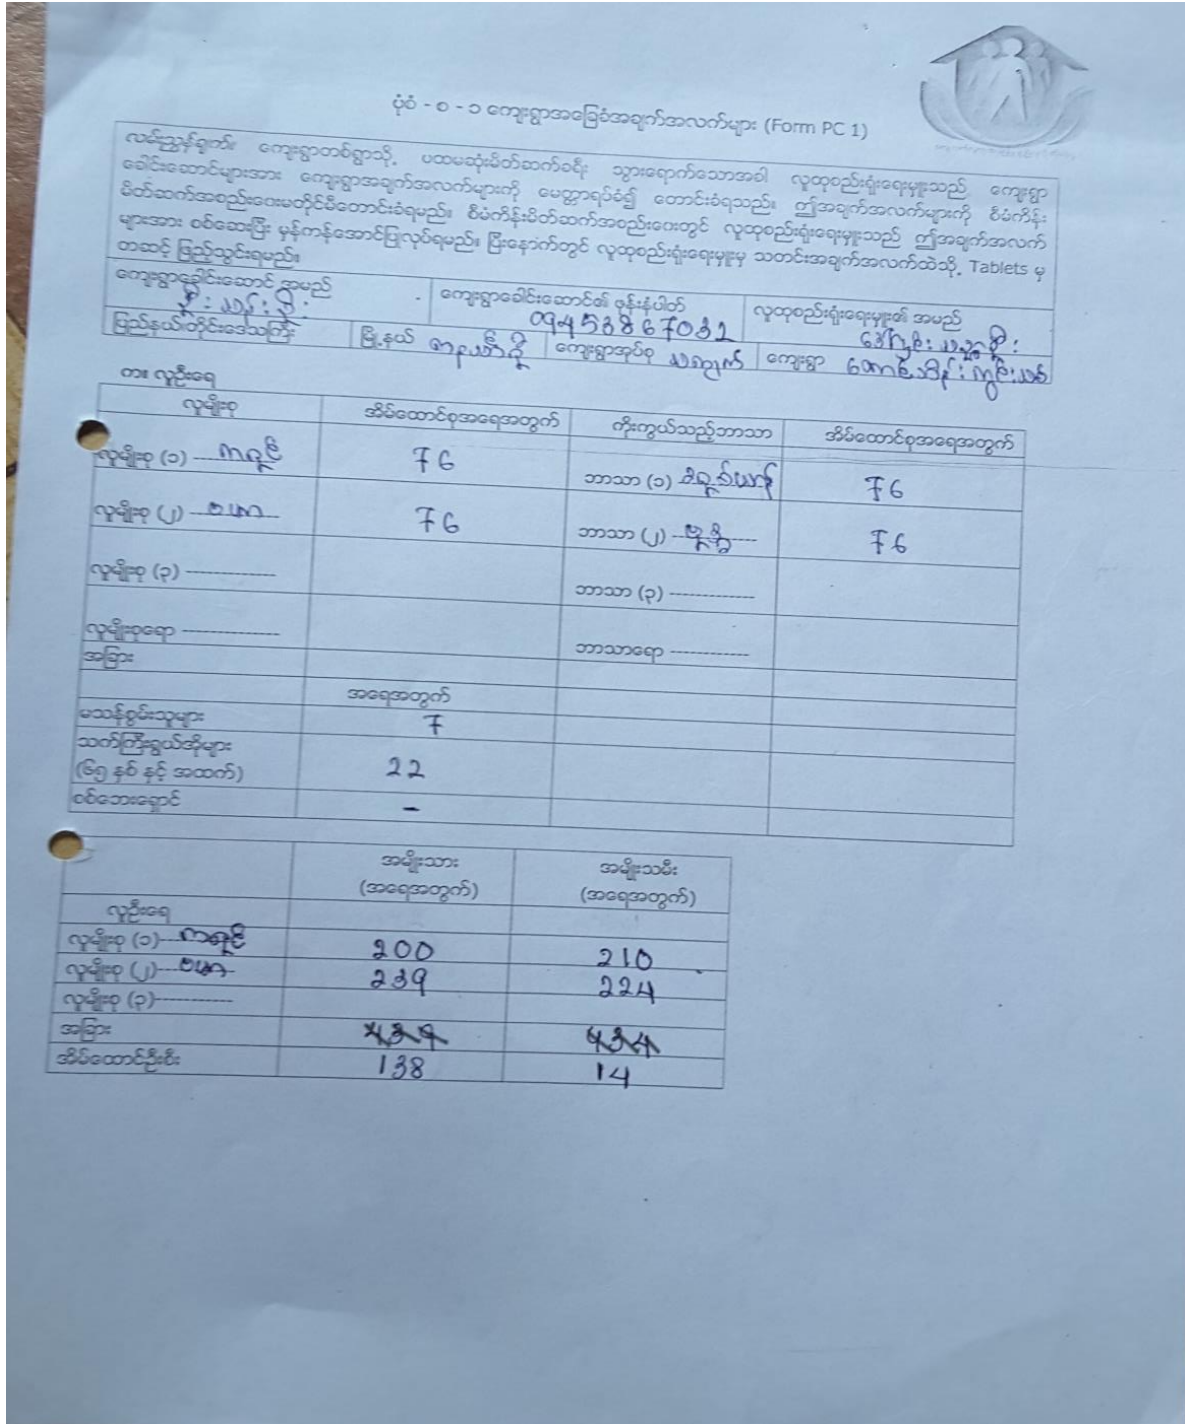 ပုံစံ - စ - ၁ ကျေးရွာအခြေခံအချက်အလက်များ (Form PC 1)
လမ်းညွှန်ချက်။ ကျေးရွာတစ်ရွာသို့ ပထမဆုံးမိတ်ဆက်ခရီး သွားရောက်သောအခါ လူထုစည်းရုံးရေးမှူးသည် ကျေးရွာ
ခေါင်းဆောင်များအား ကျေးရွာအချက်အလက်များကို မေတ္တာရပ်ခံ၍ တောင်းခံရသည်။ ဤအချက်အလက်များကို စီမံကိန်း
မိတ်ဆက်အစည်းဝေးမတိုင်မီတောင်းခံရမည်။ စီမံကိန်းမိတ်ဆက်အစည်းဝေးတွင် လူထုစည်းရုံးရေးမှူးသည် ဤအချက်အလက်
များအား စစ်ဆေးပြီး မှန်ကန်အောင်ပြုလုပ်ရမည်။ ပြီးနောက်တွင် လူထုစည်းရုံးရေးမှူးမှ သတင်းအချက်အလက်ထဲသို့ Tablets မှ
တဆင့် ဖြည့်သွင်းရမည်။
ကျေးရွာခေါင်းဆောင် အမည် ကျေးရွာခေါင်းဆောင်၏ ဖုန်းနံပါတ် လူထုစည်းရုံးရေးမှူး၏ အမည်
09453867032
ပြည်နယ်/တိုင်းဒေသကြီး မြို့နယ် တနင်္သာရီ ကျေးရွာအုပ်စု သရက် ကျေးရွာ
က။ လူဦးရေ
လူမျိုးစု အိမ်ထောင်စုအရေအတွက် ကိုးကွယ်သည့်ဘာသာ အိမ်ထောင်စုအရေအတွက်
လူမျိုးစု (၁) ကရင် 76 ဘာသာ (၁) ခရစ်ယာန် 76
လူမျိုးစု (၂) ဗမာ 76 ဘာသာ (၂) ဗုဒ္ဓ 76
လူမျိုးစု (၃) -------------- ဘာသာ (၃) -------------
လူမျိုးစုရော --------------- ဘာသာရော ------------
အခြား
အရေအတွက်
မသန်စွမ်းသူများ 7
သက်ကြီးရွယ်အိုများ
(၆၅ နှစ် နှင့် အထက်) 22
စစ်ဘေးရှောင် -
အမျိုးသား အမျိုးသမီး
(အရေအတွက်) (အရေအတွက်)
လူဦးရေ
လူမျိုးစု (၁) ကရင် 200 210
လူမျိုးစု (၂) ဗမာ 239 224
လူမျိုးစု (၃)------------
အခြား 439 434
အိမ်ထောင်ဦးစီး 138 14